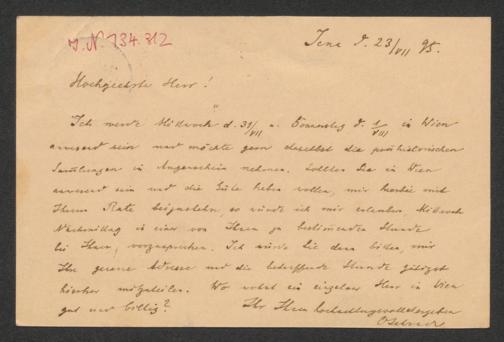 J. N. 134.312
Jena d. 23/VII 95.
Hochgeehrter Herr!
Ich werde Mittwoch d. 31/VII u. Donnerstag d. 1/VIII in Wien
anwesend sein und möchte gern daselbst die prähistorischen
Sammlungen in Augenschein nehmen. Sollten Sie in Wien
anwesend sein und die Güte haben wollen, mir hierbei mit
Ihrem Rate beizustehen, so würde ich mir erlauben Mittwoch
Nachmittag in einer von Ihnen zu bestimmenden Stunde
bei Ihnen vorzusprechen. Ich würde Sie dann bitten, mir
Ihre genaue Adresse und die betreffende Stunde gütigst
hierher mitzuteilen. Wo wohnt ein einzelner Herr in Wien
gut und billig? Ihr Ihnen hochachtungsvoll ergebener